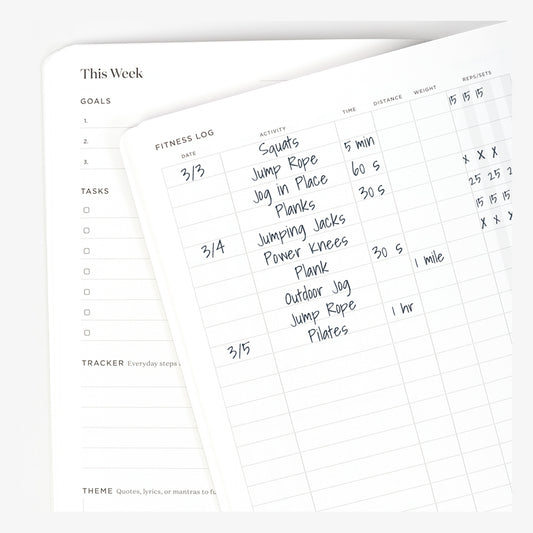 This Week
GOALS
1.
2.
3.
TASKS
TRACKER Everyday steps
THEME Quotes, lyrics, or mantras to fu
FITNESS LOG
DATE ACTIVITY TIME DISTANCE WEIGHT REPS/SETS
3/3 Squats 15 15 15
Jump Rope 5 min
Jog in Place 60 s
Planks 30 s x x x
3/4 Jumping Jacks 25 25 2
Power Knees 15 15 15
Plank 30 s x x x
Outdoor Jog 1 mile
Jump Rope
3/5 Pilates 1 hr